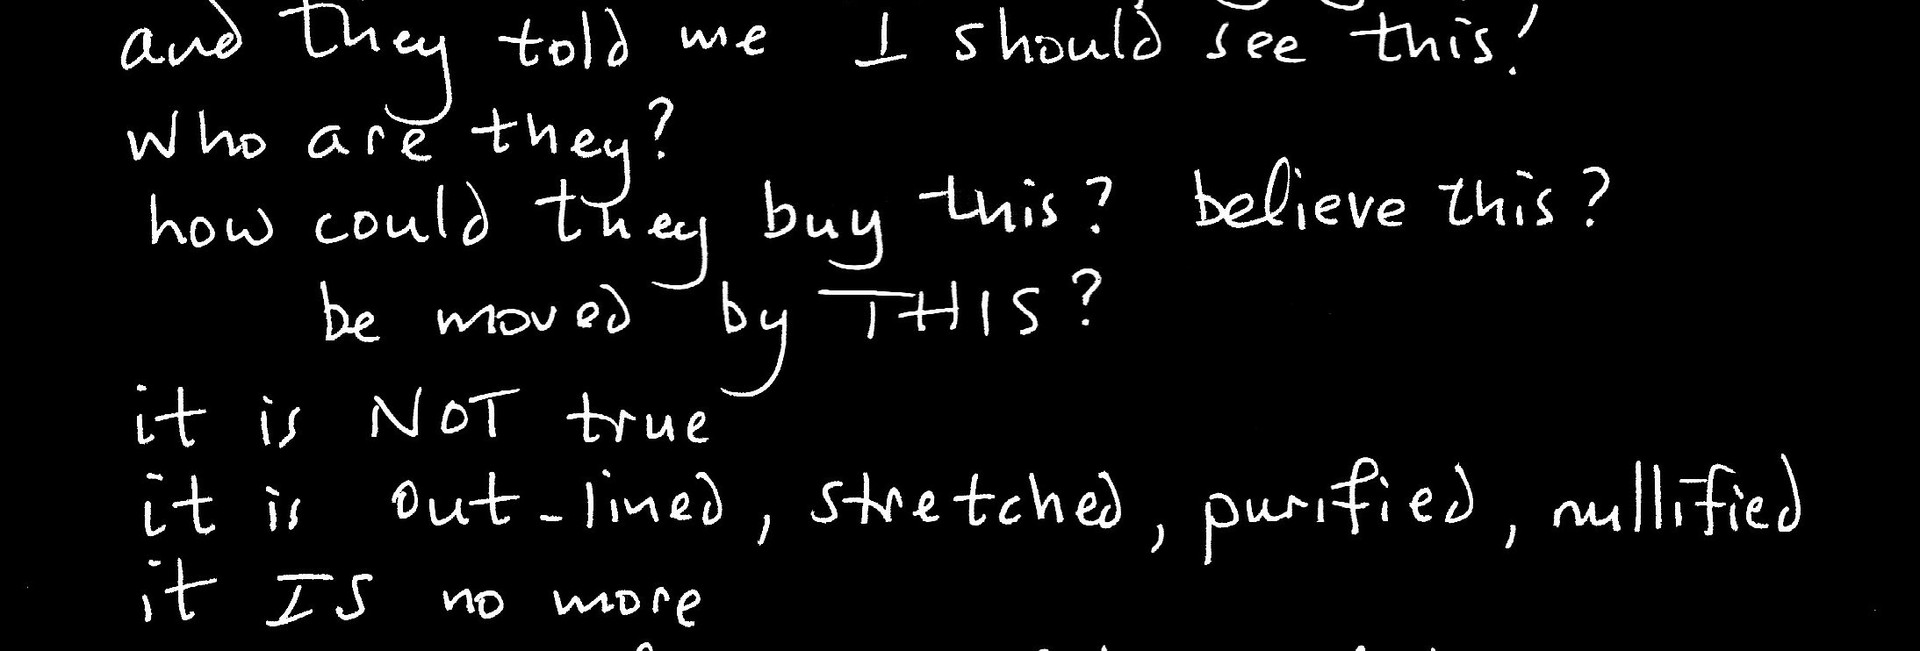 and they told me I should see this!
Who are they?
how could they buy this? believe this?
be moved by THIS?
it is NOT true
it is out-lined, stretched, purified, nullified
it IS no more